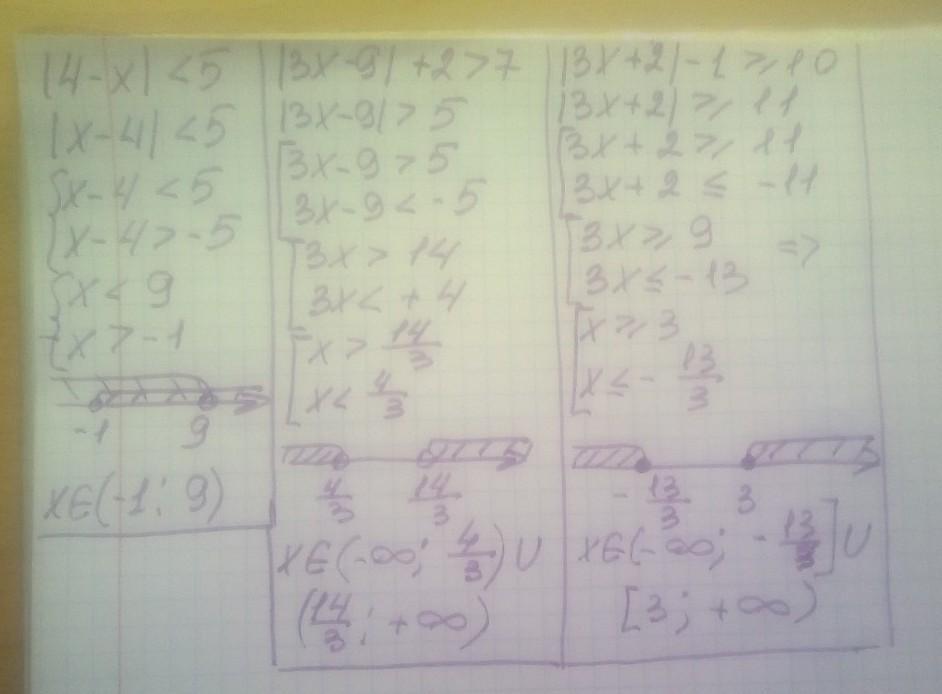 |4-x| <5
|x-4| <5
{x-4 <5
x-4>-5
{x < 9
x > -1
-1 9
x∈(-1; 9)
|3x-9| +2>7
|3x-9|> 5
[3x-9 >5
3x-9 < -5
[3x> 14
3x< +4
[x> 14/3
x< 4/3
4/3 14/3
x∈(-∞; 4/3) ∪
(14/3; +∞)
|3x+2|-1 ⩾10
|3x+2| ⩾ 11
[3x+2 ⩾ 11
3x+2 ≤ -11
[3x⩾ 9 =>
3x≤ -13
[x⩾3
x≤ - 13/3
- 13/3 3
x∈(-∞; - 13/3] ∪
[3; +∞)